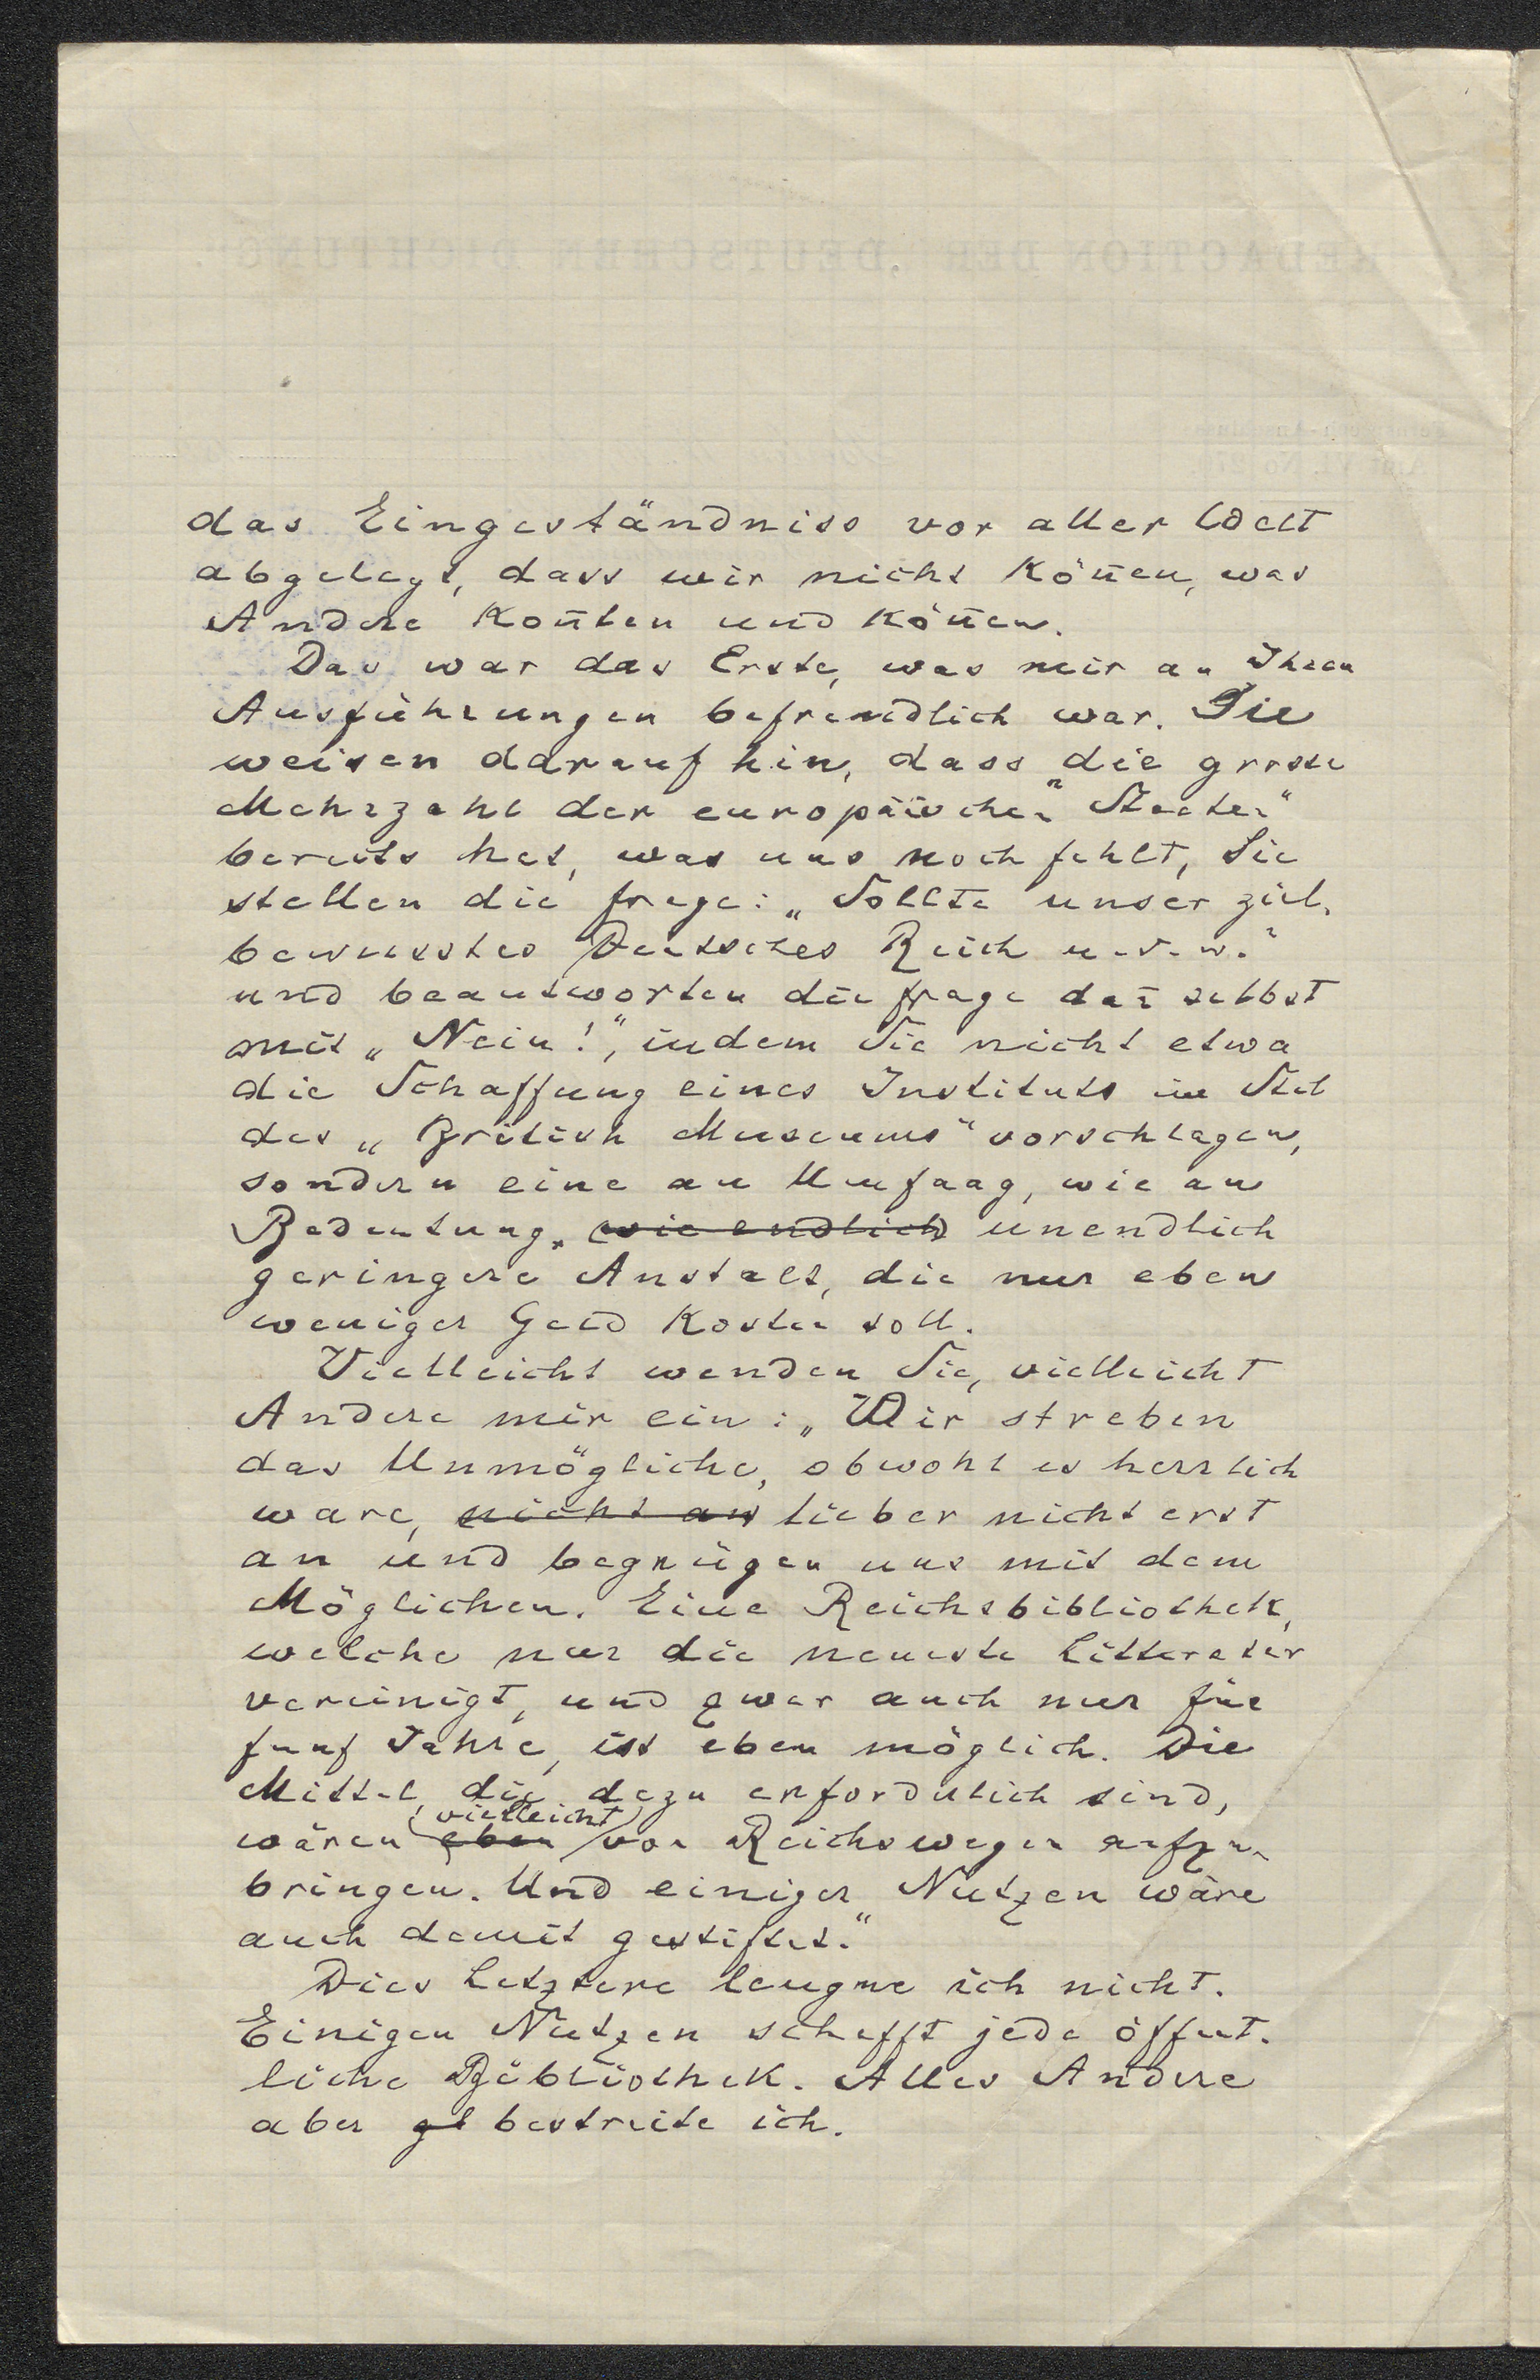 das Eingeständniss vor aller Welt
abgelegt, dass wir nicht Kön̄en, was
Andere Kon̄ten und Kön̄en.
Das war das Erste, was mir an Ihren
Ausführungen befremdlich war. Sie
weisen darauf hin, dass „die grosse
Mehrzahl der europäischen Staaten“
bereits hat, was uns noch fehlt, Sie
stellen die Frage: „Sollte unser ziel-
bewusstes Deutsches Reich u. s. w.“
und beantworten die Frage dan̄ selbst
mit „Nein!“, indem Sie nicht etwa
die Schaffung eines Instituts im Stil
des „British Museums“ vorschlagen,
sondern eine an Umfang, wie an
Bedeutung, wie endlich unendlich
geringere Anstalt, die nur eben
weniger Geld Kosten soll.
Vielleicht wenden Sie, vielleicht
Andere mir ein: „Wir streben
das Unmögliche, obwohl es herrlich
ware, nicht an lieber nicht erst
an und begnügen uns mit dem
Möglichen. Eine Reichsbibliothek,
welche nur die neueste Litteratur
vereinigt, und zwar auch nur für
funf Jahre, ist eben möglich. Die
Mittel, die dazu erforderlich sind,
vielleicht
wären eben von Reichswegen aufzu-
bringen. Und einiger Nutzen wäre
auch damit gestiftet.“
Dies Letztere leugne ich nicht.
Einigen Nutzen schafft jede öffent-
liche Bibliothek. Alles Andere
aber gl bestreite ich.